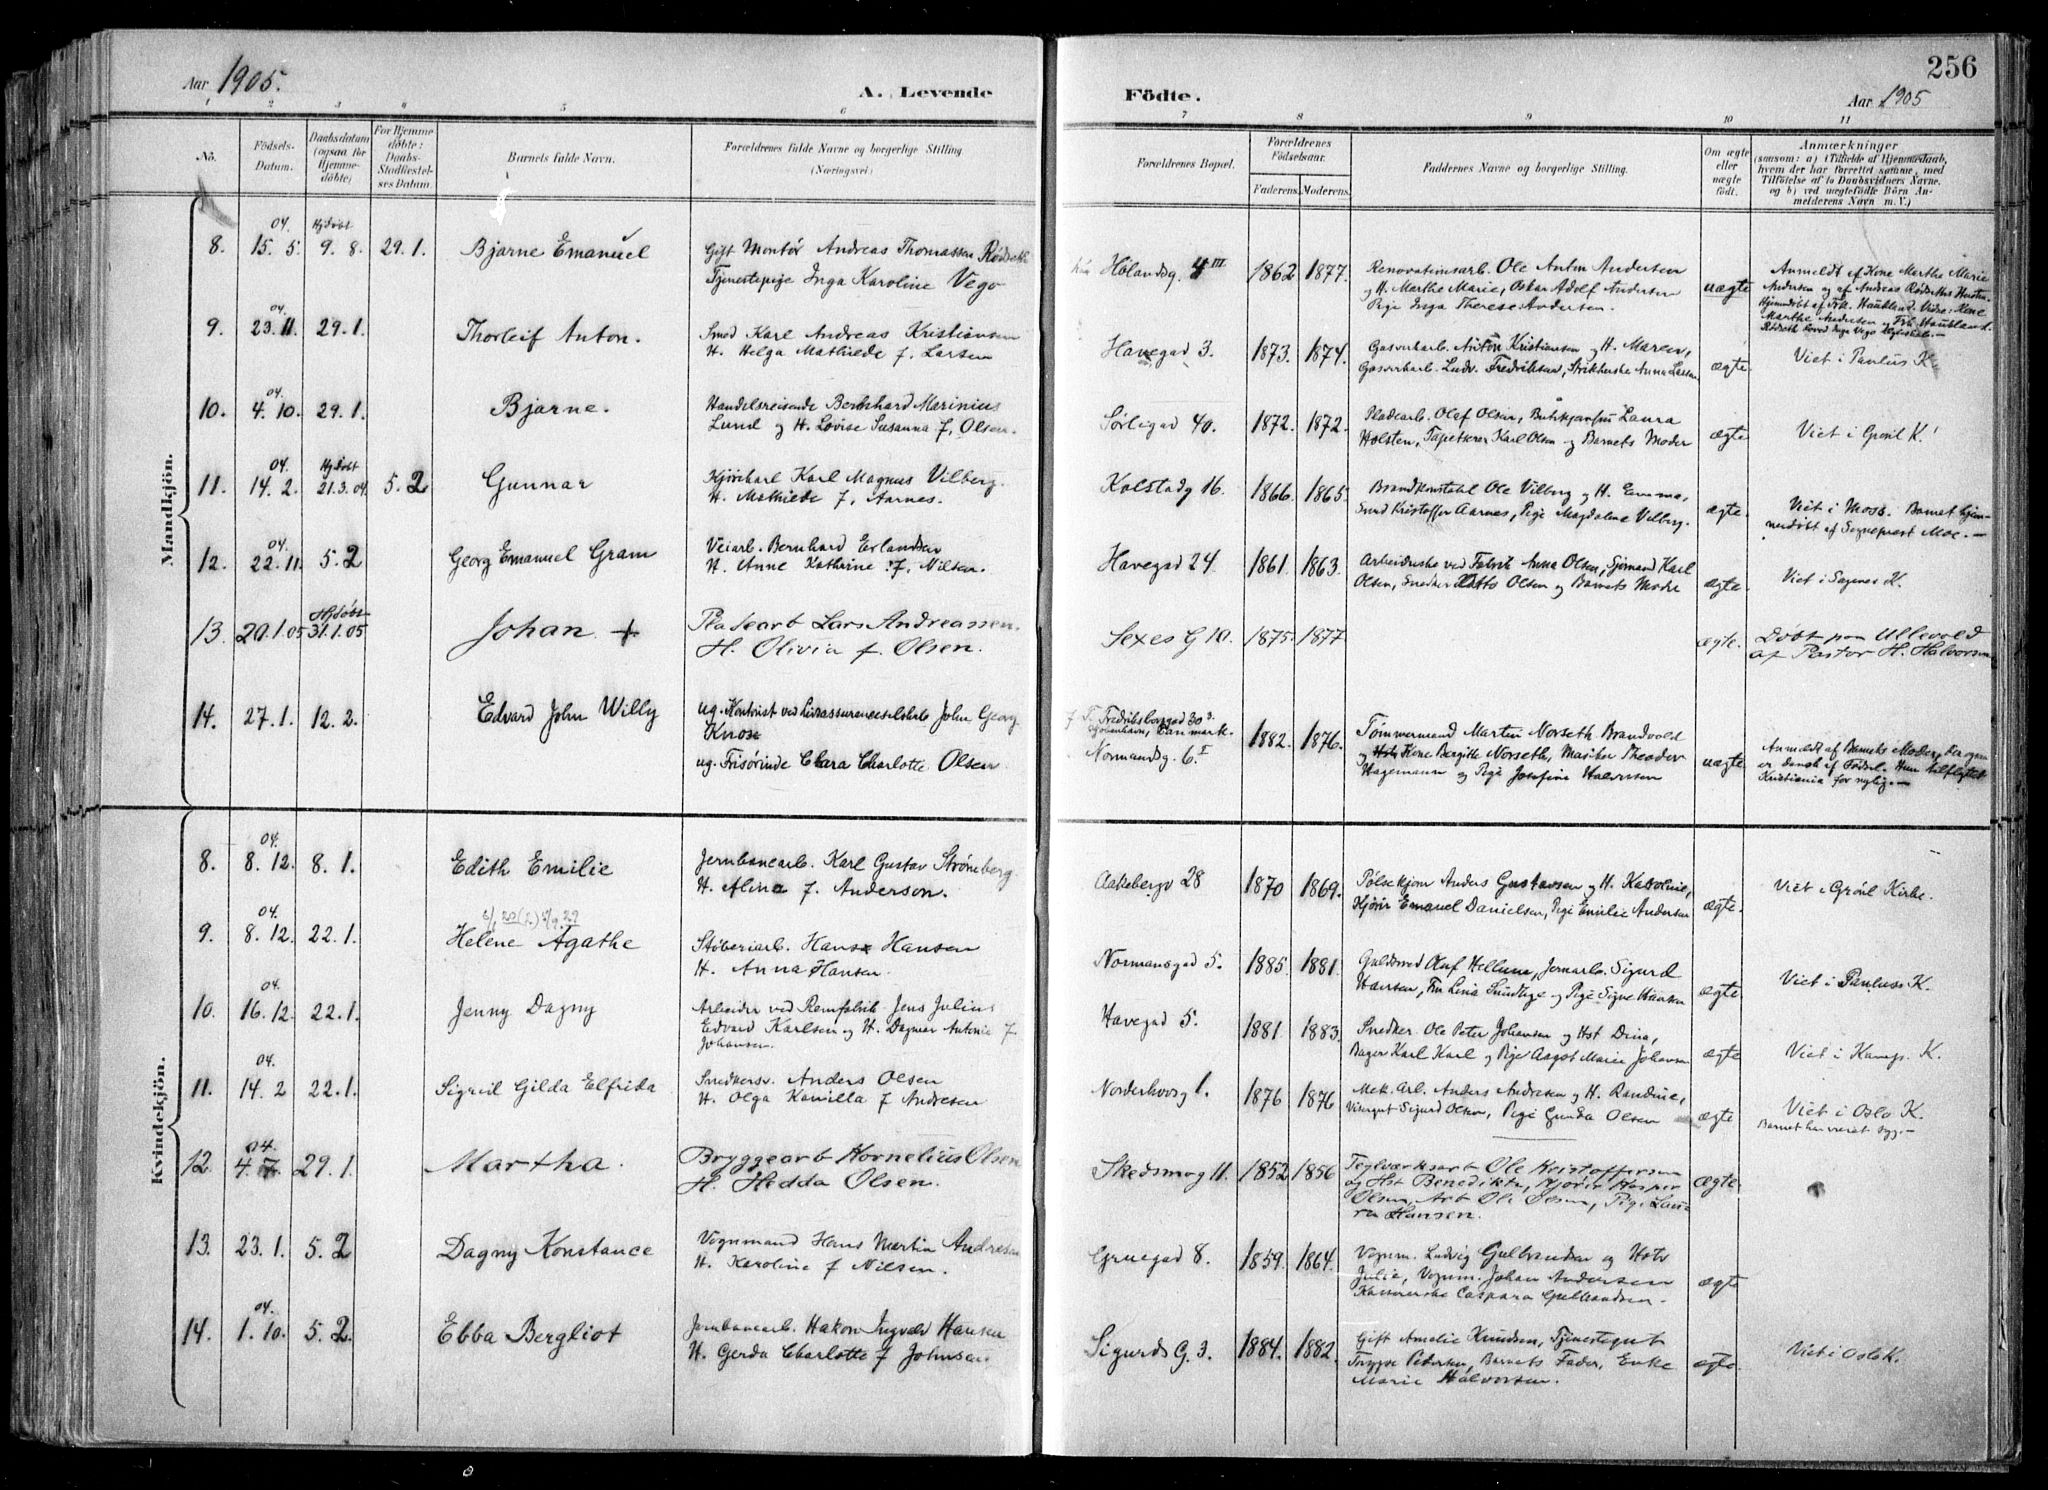 Aar 1905.
A. Levende
Födte.
256
Aar 1905
1 2 3 4 5 6 7 8 9 10 11
No.
Födsels-Datum.
Daabsdatum (ogsaa for Hjemmedöbte)
For Hjemmedöbte: Daabs-Stadfæstelses Datum.
Barnets fulde Navn.
Forældrenes fulde Navne og borgerlige Stilling (Næringsvei)
Forældrenes Bopæl.
Forældrenes Födselsaar.
Faderens. Moderens.
Faddernes Navne og borgerlige Stilling.
Om ægte eller uægte födt.
Anmærkninger
(saasom: a) (Tilfælde af Hjemmedaab,
hvem der har forrettet samme, med
Tilföielse af to Daabsvidners Navne,
og b) ved uægtefödte Börn An-
melderens Navn m. V.)
Mandkjön.
8. 04. 15. 5. Hjdøbt 9. 8. 29. 1. Bjarne Emanuel
Gift Montør Andreas Thomassen Rødseth
Tjenestepige Inga Karoline Vego
Hølandsg. 4 III 1862 1877.
Renovationsarb. Ole Anton Andersen
og H. Marthe Marie, Oskar Adolf Andersen
Pige Inga Therese Andersen.
uægte
Anmeldt af Kone Marthe Marie
Andersen og af Andreas Rødseths Hustru.
Hjemmdøbt af Frk. Haukland. Vidne: Kone
Marthe Andersen og Frk. Haukland.
9. 04. 23. 11. 29. 1. Thorleif Anton.
Smed Karl Andreas Kristiansen
H. Helga Mathilde f. Larsen
Havegad 3. 1873. 1874.
Gasverkarb. Anton Kristiansen og H. Maren,
Gasverkarb. Ludv. Fredriksen, Strikkerske Anna Larsen
ægte. Viet i Paulus K.
10. 04. 4. 10. 29. 1. Bjarne.
Handelsreisende Bernhard Marinius
Lund og H. Lovise Susanna f. Olsen.
Sørligad 40. 1872. 1872.
Pladearb. Olaf Olsen, Butikjomfru Laura
Holsten, Tapetserer Karl Olsen og Barnets Moder
ægte Viet i Grønl K.
11. 04. 14. 2. Hjdøbt 21.3.04. 5. 2 Gunnar
Kjørekarl Karl Magnus Vilberg.
H. Mathilde f. Aarnes.
Kolstadg 16. 1866. 1865.
Brandkonstabl Ole Vilberg og H. Emma,
Smed Kristoffer Aarnes, Pige Magdalene Vilberg.
ægte. Viet i Moss. Barnet hjem-
medøbt af Sogneprest Moe. —
12. 04. 22. 11. 5. 2 Georg Emanuel Gram
Veiarb. Bernhard Erlandsen
H. Anne Kathrine f. Nilsen.
Havegad 24 1861. 1863.
Arbeiderske ved Fabrik Anna Olsen, Sjømand Karl
Olsen, Snedker Otto Olsen og Barnets Moder
ægte. Viet i Sagenes K.
13. 20.1.05 Hjdøbt 31.1.05 Johan +
Pladearb Lars Andreassen.
H. Olivia f. Olsen.
Sexes G 10. 1875. 1877
ægte. Døbt paa Ullevold
af Pastor H. Halvorsen
14. 27. 1. 12. 2. Edvard John Willy
ug. Kontorist ved Livsassuranceselskab John Georg
Knox
ug. Frisørinde Clara Charlotte Olsen
f T. Fredriksborggad 30 3.
Kjøbenhavn, Danmark.
Normandsg. 6. I 1882. 1876.
Tømmermand Martin Norseth Brandvold
og Kone Bergitte Norseth, Musiker Theodor
Hagemann og Pige Josefine Halvorsen
uægte Anmeldt af Barnets Moder, der ogsaa
er dansk af Fødsel. Hun tilflyttet
Kristiania for nylig. —
Kvindekjön.
8. 04. 8. 12. 8. 1. Edith Emilie
Jernbanearb. Karl Gustav Strøneberg
H. Alina f. Anderson.
Aakebergv 28 1870 1869.
Pølsekjøm Anders Gustavsen og H. Karoline,
Kjører Emanuel Danielsen, Pige Emilie Andersen
ægte. Viet i Grønl Kirke.
9. 04. 8. 12. 22. 1. Helene Agathe
Støberiarb. Hans Hansen
H. Anna Hansen.
Normansgad 5. 1885. 1881.
Guldsmed Oluf Hellum, Jernarb. Sigurd
Hansen, Fru Lina Sundbye og Pige Signe Hansen
ægte. Viet i Paulus K.
10. 04. 16. 12. 22. 1. Jenny Dagny
Arbeider ved Remfabrik Jens Julius
Edvard Karlsen og H. Dagmar Antonie f
Johansen.
Havegad 5. 1881 1883.
Snedker Ole Peter Johansen og Hst Dina,
Bager Karl Karl og Pige Aagot Marie Johansen
ægte Viet i Kamp. K.
11. 04. 14. 2 22. 1. Sigrid Gilda Elfrida
Snedkersv. Anders Olsen
H. Olga Kamilla f Andresen
Norderhovsg 1. 1876 1876
Mek. Arb. Anders Andresen og H. Randine,
Visergut Sigurd Olsen, Pige Gunda Olsen
ægte Viet i Oslo K.
Barnet har været syg. —
12. 04. 4. 29. 1. Martha.
Bryggearb Kornelius Olsen
H. Hedda Olsen.
Skedsmog 11. 1852 1856
Teglværksarb Ole Kristoffersen
og Hst Benedikte, Kjører Kasper
Olsen, Arb Ole Olsen, Pige Lau
ra Hansen.
ægte
13. 23. 1. 5. 2 Dagny Konstance
Vognmand Hans Martin Andresen
H. Karoline f Nilsen.
Gruegad 8. 1859. 1864.
Vognm. Ludvig Gulbrandsen og Hstr
Julie, Vognm. Johan Andersen
Kassererske Caspara Gulbrandsen.
ægte
14. 04. 1. 10. 5. 2. Ebba Bergliot
Jernbanearb. Hakon Ingvald Hansen
H. Gerda Charlotte f Johnsen.
Sigurds G. 3. 1884. 1882.
Gift Amelie Knudsen, Tjenestegut
Trygve Pedersen, Barnets Fader, Enke
Marie Halvorsen.
ægte Viet i Oslo K.